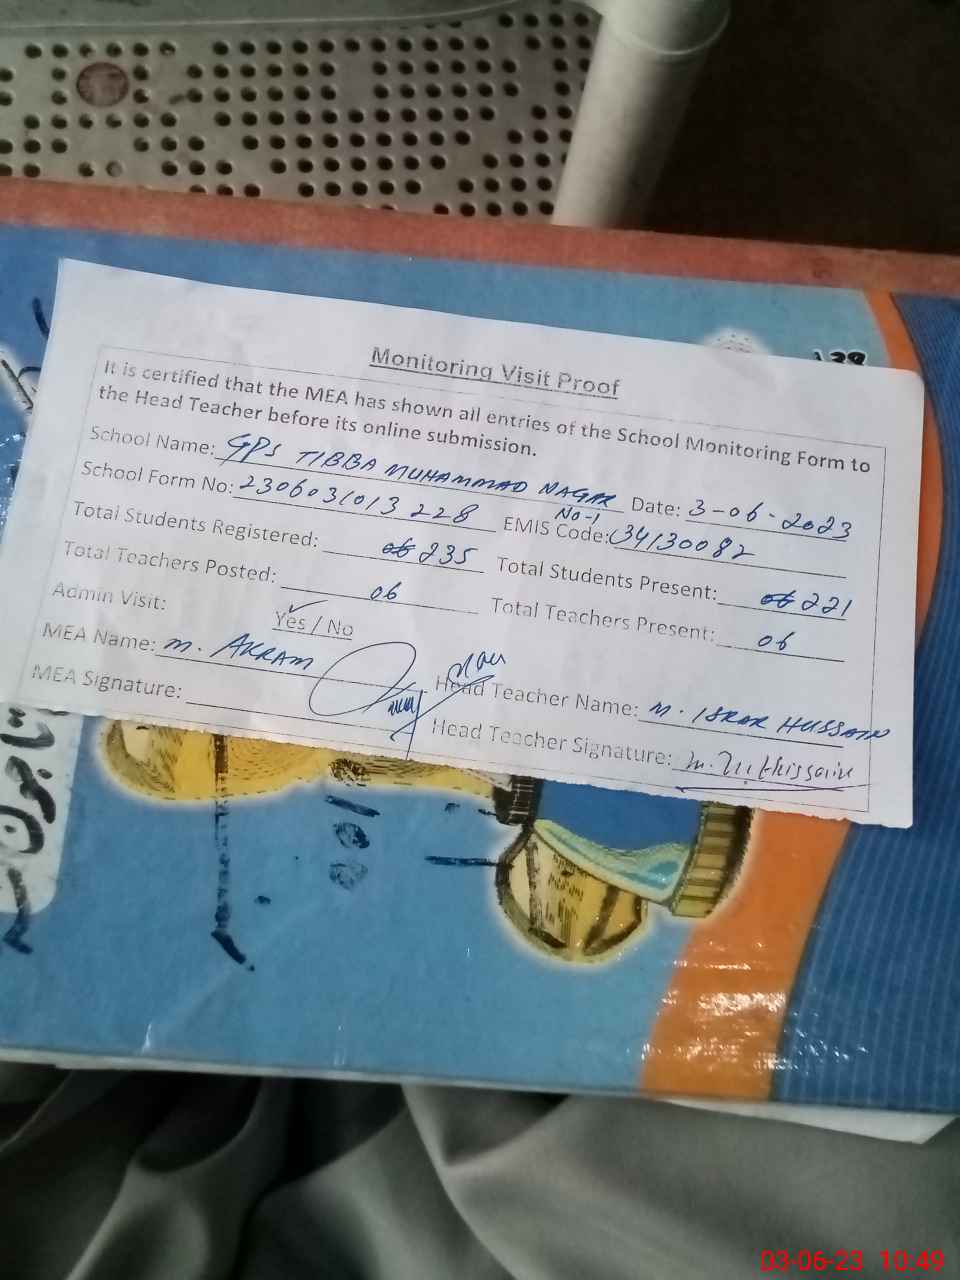 Monitoring Visit Proof
It is certified that the MEA has shown all entries of the School Monitoring Form to
the Head Teacher before its online submission.
School Name: GPS TIBBA MUHAMMAD NAGAR No-1 Date: 3-06-2023
School Form No: 2306031013228 EMIS Code: 34130082
Total Students Registered: 06 235 Total Students Present: 06 221
Total Teachers Posted: 06 Total Teachers Present: 06
Admin Visit: Yes / No
MEA Name: M. AKRAM Head Teacher Name: M. ISRAR HUSSAIN
MEA Signature: Head Teacher Signature: Hussain
03-06-23 10:49